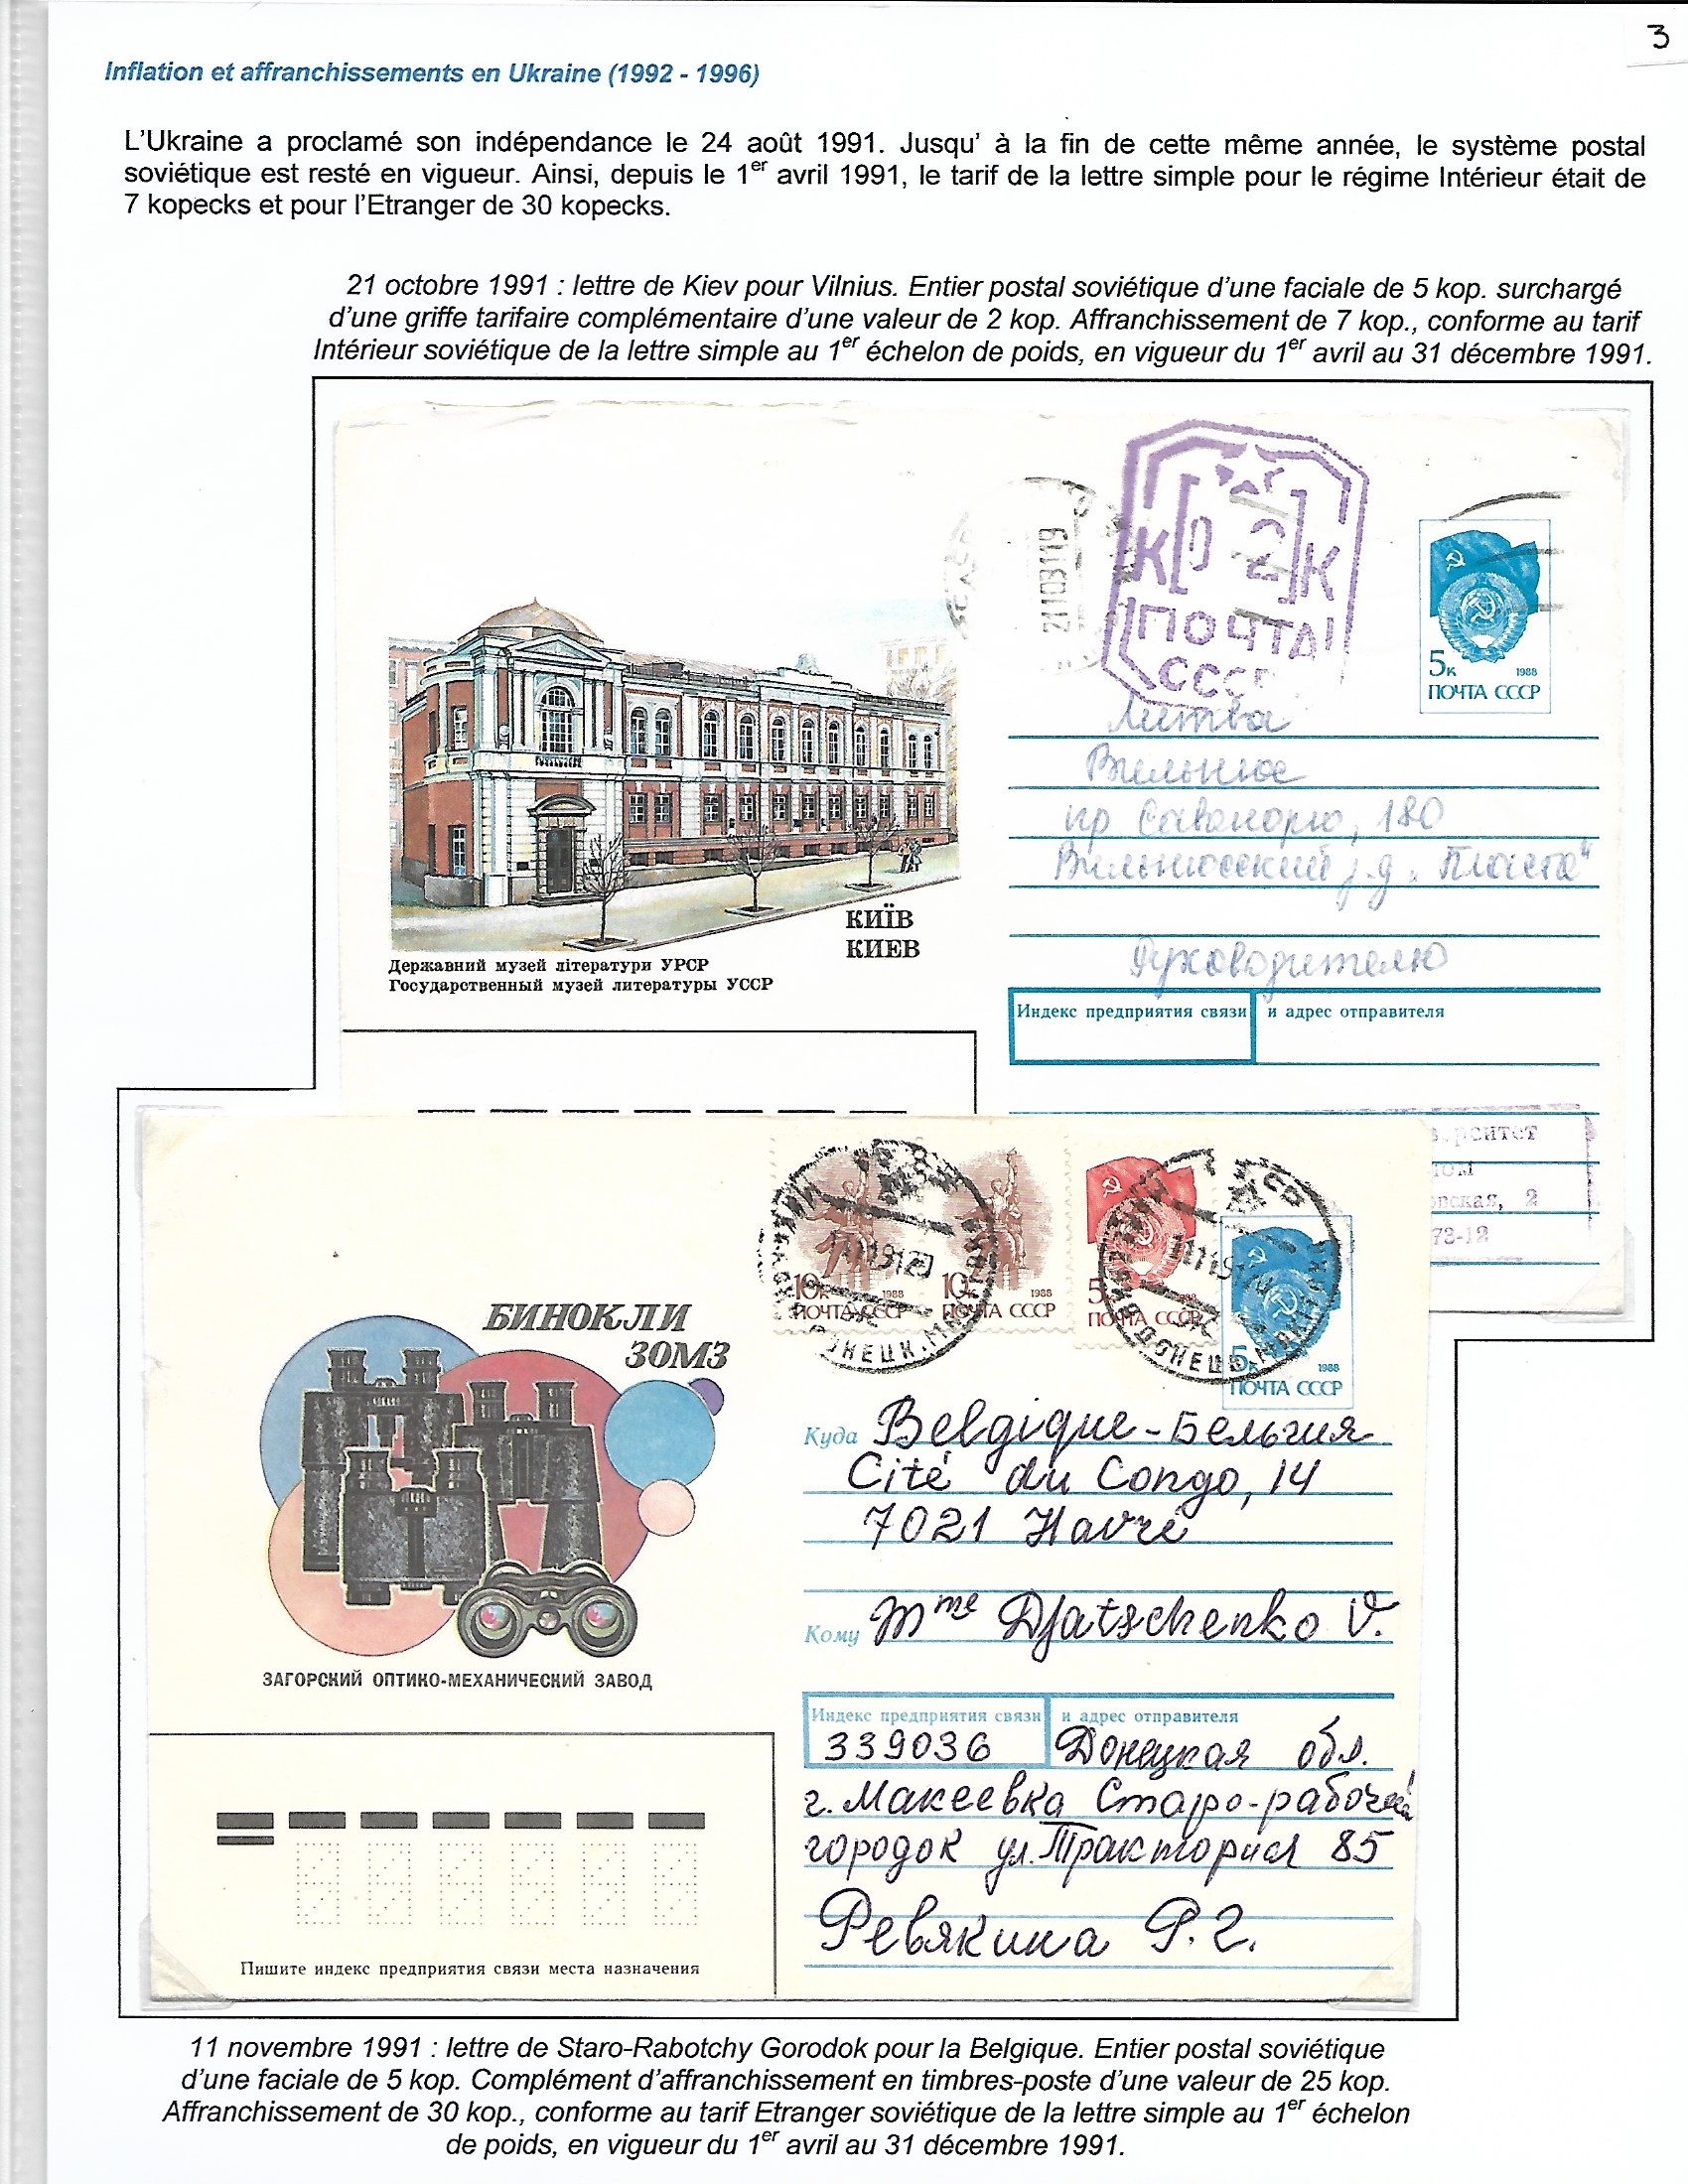 3
Inflation et affranchissements en Ukraine (1992 - 1996)
L'Ukraine a proclamé son indépendance le 24 août 1991. Jusqu' à la fin de cette même année, le système postal
soviétique est resté en vigueur. Ainsi, depuis le 1er avril 1991, le tarif de la lettre simple pour le régime Intérieur était de
7 kopecks et pour l'Etranger de 30 kopecks.
21 octobre 1991 : lettre de Kiev pour Vilnius. Entier postal soviétique d'une faciale de 5 kop. surchargé
d'une griffe tarifaire complémentaire d'une valeur de 2 kop. Affranchissement de 7 kop., conforme au tarif
Intérieur soviétique de la lettre simple au 1er échelon de poids, en vigueur du 1er avril au 31 décembre 1991.
К 02 К
ПОЧТА
СССР
5к 1988
ПОЧТА СССР
Литва
Вильнюс
пр Саванорю, 180
Вильнюсский з-д „Пласта"
Руководителю
КИЇВ
КИЕВ
Державний музей літератури УРСР
Государственный музей литературы УССР
Индекс предприятия связи и адрес отправителя
2
73-12
10к 1988
ПОЧТА СССР
10к 1988
ПОЧТА СССР
5к 1988
ПОЧТА СССР
5к 1988
ПОЧТА СССР
БИНОКЛИ
ЗОМЗ
ЗАГОРСКИЙ ОПТИКО-МЕХАНИЧЕСКИЙ ЗАВОД
Куда Belgique - Бельгия
Cité du Congo, 14
7021 Havré
Кому Mme Djatschenko V.
Индекс предприятия связи и адрес отправителя
339036 Донецкая обл.
г. Макеевка Старо-рабочий
городок ул. Тракториса 85
Ревякина Р. Г.
Пишите индекс предприятия связи места назначения
11 novembre 1991 : lettre de Staro-Rabotchy Gorodok pour la Belgique. Entier postal soviétique
d'une faciale de 5 kop. Complément d'affranchissement en timbres-poste d'une valeur de 25 kop.
Affranchissement de 30 kop., conforme au tarif Etranger soviétique de la lettre simple au 1er échelon
de poids, en vigueur du 1er avril au 31 décembre 1991.